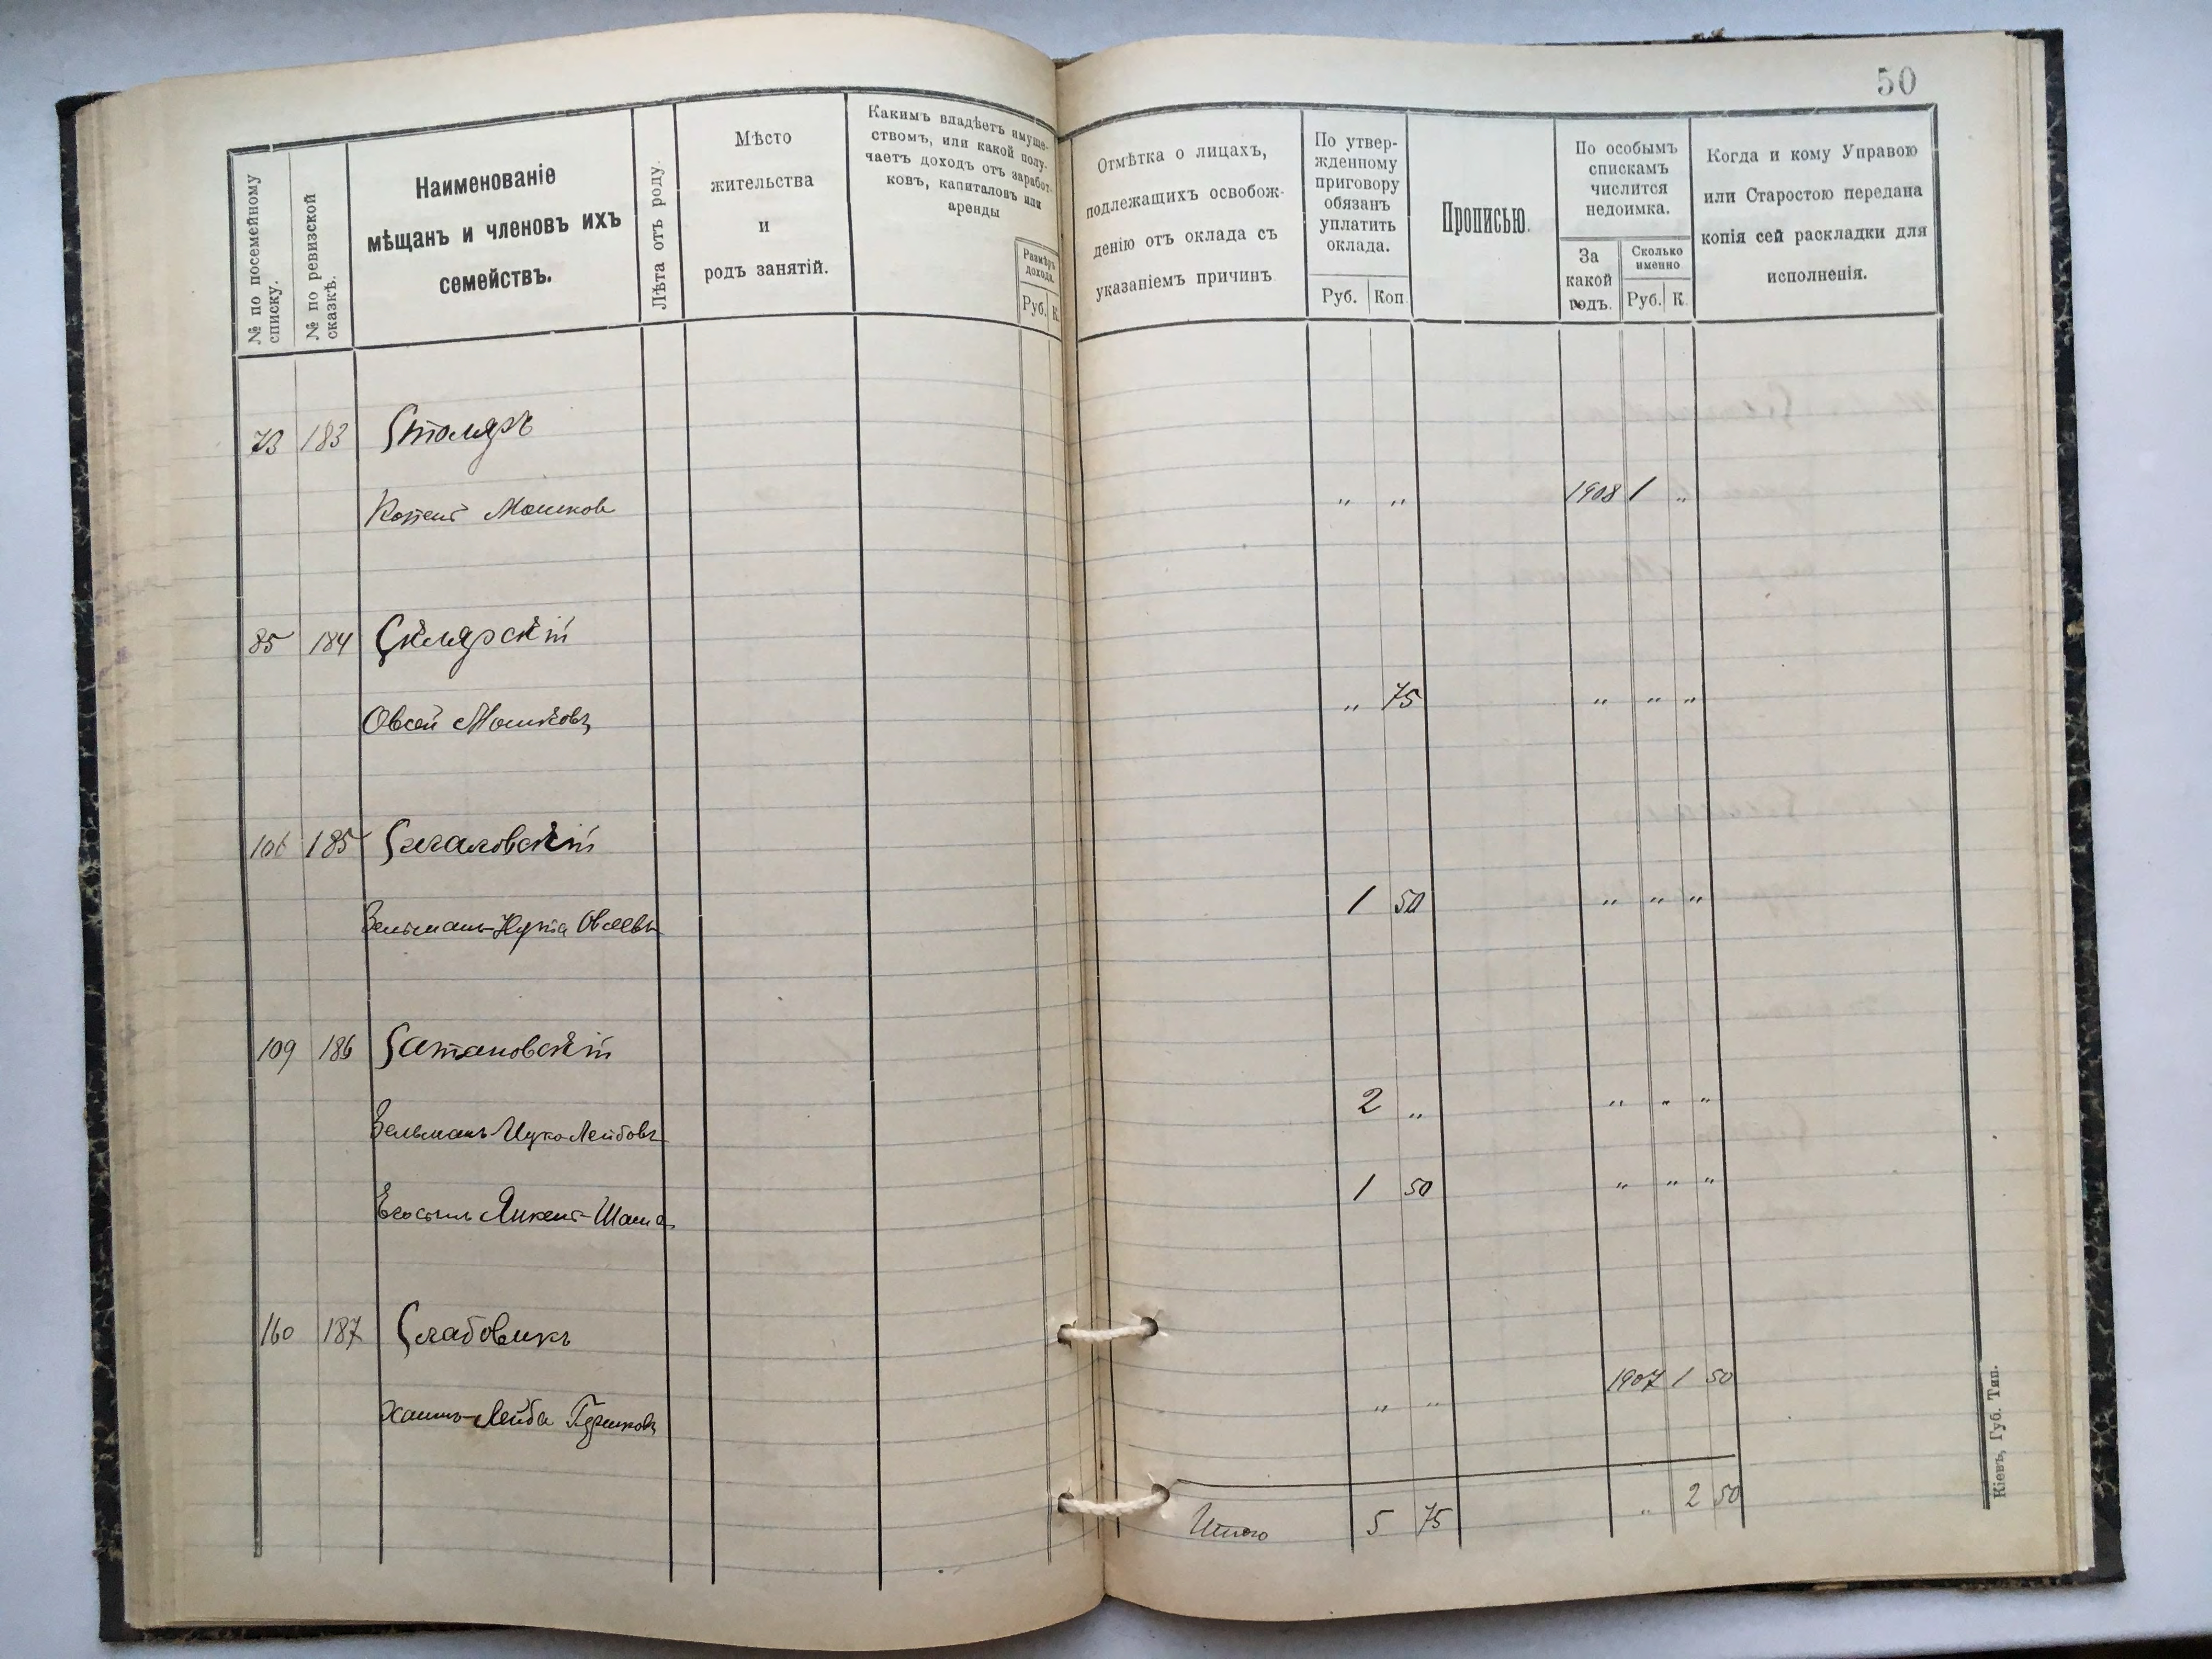 50
№ по посемейному списку.
№ по ревизской сказкѣ.
Наименованіе
мѣщанъ и членовъ ихъ
семействъ.
Лѣта отъ роду.
Мѣсто
жительства
и
родъ занятій.
Какимъ владѣетъ имуще-
ствомъ, или какой полу-
чаетъ доходъ отъ заработ-
ковъ, капиталовъ или
аренды
Размѣръ
дохода.
Руб. К.
Отмѣтка о лицахъ,
подлежащихъ освобож-
денію отъ оклада съ
указаніемъ причинъ
По утвер-
жденному
приговору
обязанъ
уплатить
оклада.
Руб. Коп.
Прописью.
По особымъ
спискамъ
числится
недоимка.
За
какой
годъ.
Сколько
именно
Руб. К.
Когда и кому Управою
или Старостою передана
копія сей раскладки для
исполненія.
73 183 Столяръ
Мошков „ „ 1908 1 „
85 184 Склярскій
Овсей Мошковъ „ 75 „ „ „
106 185
Овсеевъ 1 50 „ „ „
109 186 Сатановскій
Зельманъ-Ицко Лейбовъ 2 „ „ „ „
Янкель-Шая 1 50 „ „ „
160 187 Слабовикъ
Хаимъ-Лейба „ „ 1907 1 50
Итого 5 75 „ 2 50
Кіевъ, Губ. Тип.